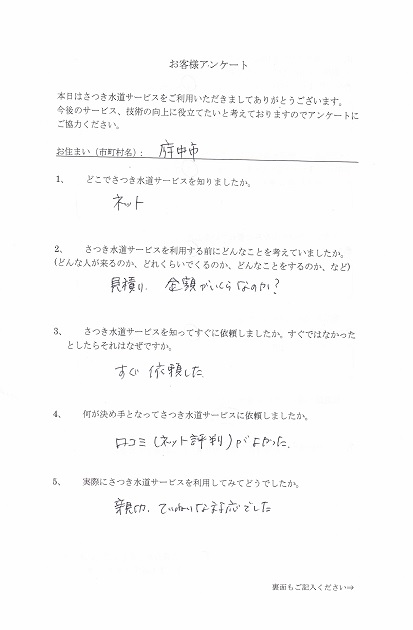 お客様アンケート
本日はさつき水道サービスをご利用いただきましてありがとうございます。
今後のサービス、技術の向上に役立てたいと考えておりますのでアンケートに
ご協力ください。
お住まい(市町村名): 府中市
1、 どこでさつき水道サービスを知りましたか。
ネット
2、 さつき水道サービスを利用する前にどんなことを考えていましたか。
(どんな人が来るのか、どれくらいでくるのか、どんなことをするのか、など)
見積り、金額がいくらなのか?
3、 さつき水道サービスを知ってすぐに依頼しましたか。すぐではなかった
としたらそれはなぜですか。
すぐ依頼した。
4、 何が決め手となってさつき水道サービスに依頼しましたか。
口コミ(ネット評判)がよかった。
5、 実際にさつき水道サービスを利用してみてどうでしたか。
親切、ていねいな対応でした
裏面もご記入ください⇒